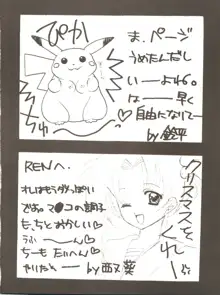 ぴか
ちゅう
ま、ページ
うめたんだし
いーよね。
はー早く
自由になりてー
by 鈴平
RENへ。
クリスマスをくれー
れはもうダっぽい
でよ。マ●コの調子
もっちとおかしい
うふーん
ちーも たいへん
by 西又葵